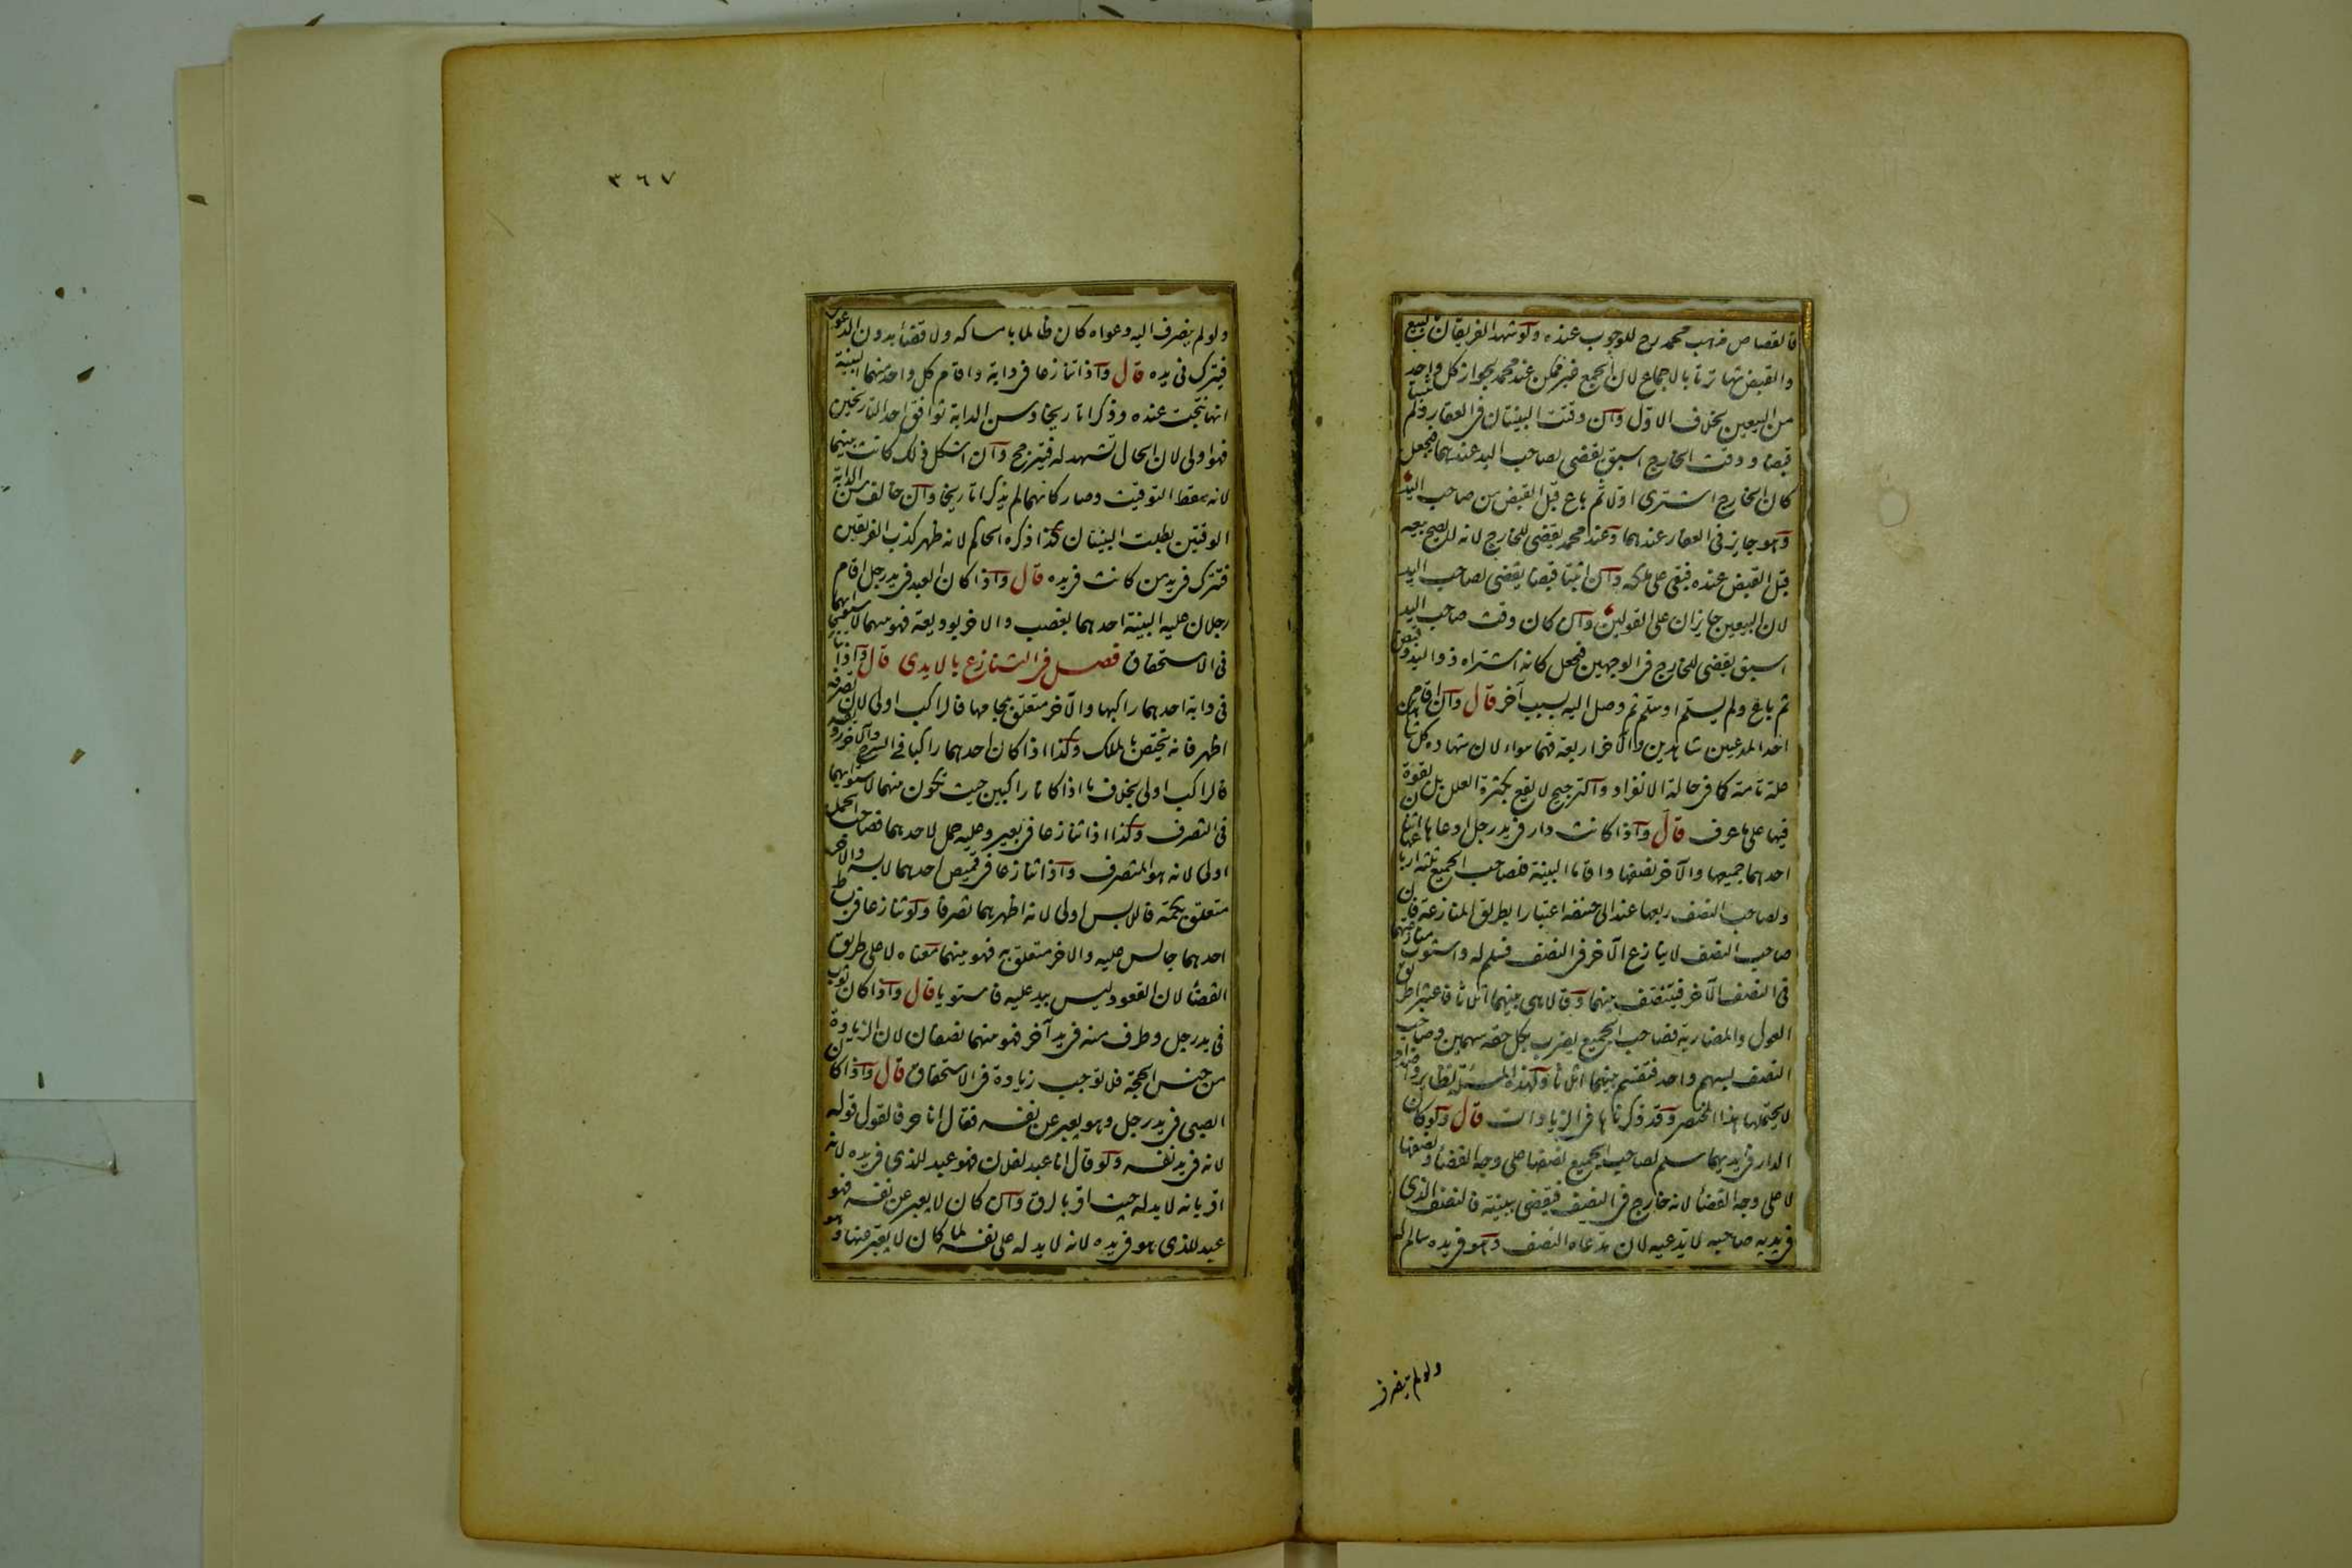 فالقصاص مذهب محمد رح للوجوب عنده ولو شهد الفريقان بالبيع
والقبض تهاترتا بالاجماع لان الجمع غير ممكن عند محمد بجواز كل واحد
من البيعين بخلاف الاول وان وقتت البينتان فى العقار ولم تثبتا
قبضا ووقت الخارج اسبق يقضى لصاحب اليد عندهما فيجعل
كان الخارج اشترى اولا ثم باع قبل القبض من صاحب اليد
وهو جايز فى العقار عندهما وعند محمد يقضى للخارج لانه لا يصح بيعه
قبل القبض عنده فبقى على ملكه وان اثبتا قبضا يقضى لصاحب اليد
لان البيعين جايزان على القولين وان كان وقت صاحب اليد
اسبق يقضى للخارج فى الوجهين فيجعل كانه اشتراه ذو اليد وقبض
ثم باع ولم يسلم او سلم ثم وصل اليه بسبب آخر قال وان اقام
احد المدعيين شاهدين والآخر اربعة فهما سواء لان شهادة كل شاهدين
علة تامة كما فى حالة الانفراد والترجيح لا يقع بكثرة العلل بل بقوة
فيها على ما عرف قال واذا كانت دار فى يد رجل ادعاها اثنان
احدهما جميعها والآخر نصفها واقاما البينة فلصاحب الجميع ثلثة ارباعها
ولصاحب النصف ربعها عند ابى حنيفة اعتبارا بطريق المنازعة فان
صاحب النصف لا ينازع الآخر فى النصف فسلم له واستوت منازعتهما
فى النصف الآخر فيتنصف بينهما وقالا هى بينهما اثلاثا فاعتبرا طريق
العول والمضاربة فصاحب الجميع يضرب بكل حقه سهمين وصاحب
النصف بسهم واحد فتقسم بينهما اثلاثا ولهذه المسئلة نظاير واضداد
لا يحتملها هذا المختصر وقد ذكرناها فى الزيادات قال ولو كان
الدار فى ايديهما سلم لصاحب الجميع نصفها على وجه القضاء ونصفها
لا على وجه القضاء لانه خارج فى النصف فيقضى ببينته فالنصف الذى
فى يديه صاحبه لا يدعيه لان مدعاه النصف وهو فى يده سالم له
ولو لم ينصرف
٣٦٧
ولو لم ينصرف اليه دعواه كان ظالما بامساكه ولا قضاء بدون الدعوى
فيترك فى يده قال واذا تنازعا فى دابة واقام كل واحد منهما البينة
انها نتجت عنده وذكرا تاريخا وسن الدابة توافق احد التاريخين
فهو اولى لان الحال تشهد له فيترجح وان اشكل ذلك كانت بينهما
لانه سقط التوقيت وصار كانهما لم يذكرا تاريخا وان خالف سن الدابة
الوقتين بطلت البينتان كذا ذكره الحاكم لانه ظهر كذب الفريقين
فتترك فى يد من كانت فى يده قال واذا كان العبد فى يد رجل اقام
رجلان عليه البينة احدهما بغصب والاخر بوديعة فهو بينهما لاستوائهما
فى الاستحقاق فصل فى التنازع بالايدى قال واذا تنازعا
فى دابة احدهما راكبها والآخر متعلق بلجامها فالراكب اولى لان تصرفه
اظهر فانه يختص بالملك وكذا اذا كان احدهما راكبا فى السرج والآخر رديفه
فالراكب اولى بخلاف ما اذا كانا راكبين حيث تكون بينهما لاستوائهما
فى التصرف وكذا اذا تنازعا فى بعير وعليه حمل لاحدهما فصاحب الحمل
اولى لانه هو المتصرف واذا تنازعا فى قميص احدهما لابسه والآخر
متعلق بكمه فاللابس اولى لانه اظهرهما تصرفا ولو تنازعا فى بساط
احدهما جالس عليه والاخر متعلق به فهو بينهما معناه لا على طريق
القضاء لان القعود ليس بيد عليه فاستويا قال واذا كان ثوب
فى يد رجل وطرف منه فى يد آخر فهو بينهما نصفان لان الزيادة
من جنس الحجة فلا توجب زيادة فى الاستحقاق قال واذا كان
الصبى فى يد رجل وهو يعبر عن نفسه فقال انا حر فالقول قوله
لانه فى يد نفسه ولو قال انا عبد لفلان فهو عبد للذى فى يده لانه
اقر بانه لا يد له حيث اقر بالرق وان كان لا يعبر عن نفسه فهو
عبد للذى هو فى يده لانه لا يد له على نفسه لما كان لا يعبر عنها وهو